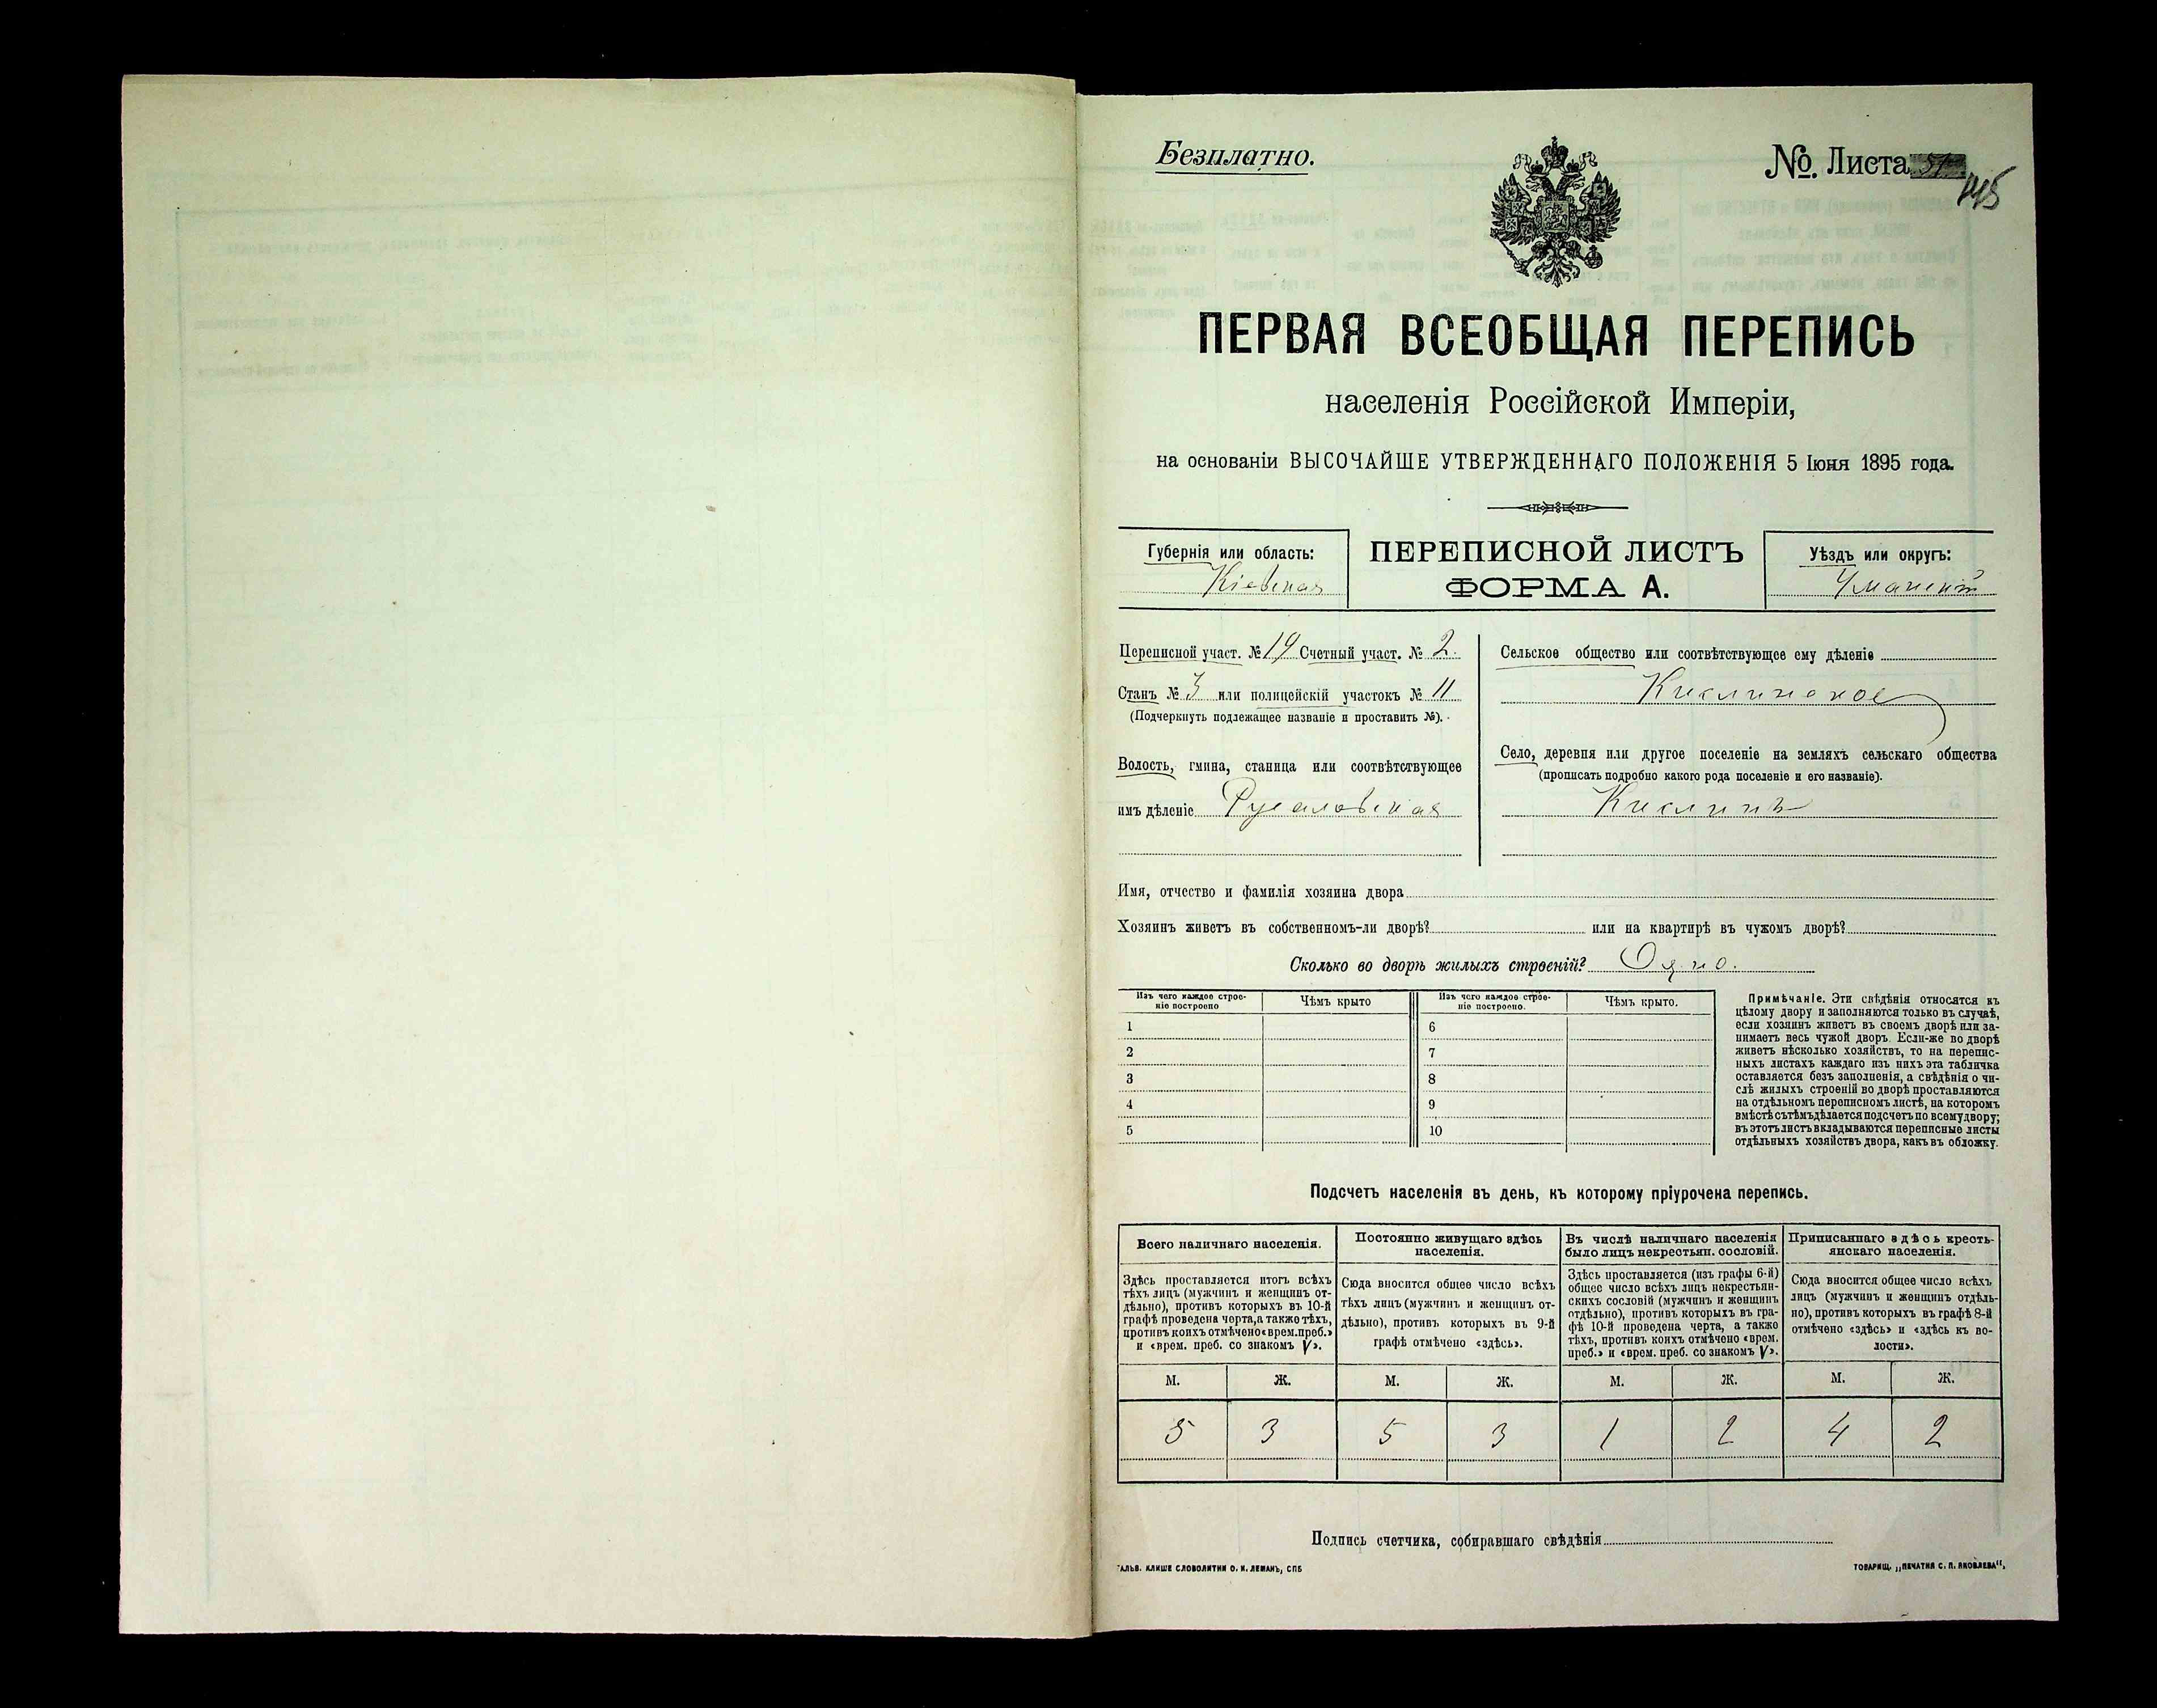 Безплатно.
№. Листа
145
ПЕРВАЯ ВСЕОБЩАЯ ПЕРЕПИСЬ
населенія Россійской Имперіи,
на основаніи ВЫСОЧАЙШЕ УТВЕРЖДЕННАГО ПОЛОЖЕНІЯ 5 Іюня 1895 года.
Губернія или область:
Кіевская
ПЕРЕПИСНОЙ ЛИСТЪ
ФОРМА А.
Уѣздъ или округъ:
Уманскій
Переписной участ. № 19 Счетный участ. № 2.
Станъ № 3 или полицейскій участокъ № 11
(Подчеркнуть подлежащее названіе и проставить №).
Волость, гмина, станица или соотвѣтствующее
имъ дѣленіе Русаловская
Сельское общество или соотвѣтствующее ему дѣленіе
Кислинское
Село, деревня или другое поселеніе на земляхъ сельскаго общества
(прописать подробно какого рода поселеніе и его названіе).
Кислинъ
Имя, отчество и фамилія хозяина двора
Хозяинъ живетъ въ собственномъ-ли дворѣ? или на квартирѣ въ чужомъ дворѣ?
Сколько во дворѣ жилыхъ строеній? Одно.
Изъ чего каждое строе-
ніе построено
Чѣмъ крыто
Изъ чего каждое строе-
ніе построено.
Чѣмъ крыто.
1
2
3
4
5
6
7
8
9
10
Примѣчаніе. Эти свѣдѣнія относятся къ
цѣлому двору и заполняются только въ случаѣ,
если хозяинъ живетъ въ своемъ дворѣ или за-
нимаетъ весь чужой дворъ. Если-же во дворѣ
живетъ нѣсколько хозяйствъ, то на перепис-
ныхъ листахъ каждаго изъ нихъ эта табличка
оставляется безъ заполненія, а свѣдѣнія о чи-
слѣ жилыхъ строеній во дворѣ проставляются
на отдѣльномъ переписномъ листѣ, на которомъ
вмѣстѣ съ тѣмъ дѣлается подсчетъ по всему двору;
въ этотъ листъ вкладываются переписные листы
отдѣльныхъ хозяйствъ двора, какъ въ обложку.
Подсчетъ населенія въ день, къ которому пріурочена перепись.
Всего наличнаго населенія.
Здѣсь проставляется итогъ всѣхъ
тѣхъ лицъ (мужчинъ и женщинъ от-
дѣльно), противъ которыхъ въ 10-й
графѣ проведена черта, а также тѣхъ,
противъ коихъ отмѣчено «врем. преб.»
и «врем. преб. со знакомъ V».
Постоянно живущаго здѣсь
населенія.
Сюда вносится общее число всѣхъ
тѣхъ лицъ (мужчинъ и женщинъ от-
дѣльно), противъ которыхъ въ 9-й
графѣ отмѣчено «здѣсь».
Въ числѣ наличнаго населенія
было лицъ некрестьян. сословій.
Здѣсь проставляется (изъ графы 6-й)
общее число всѣхъ лицъ некрестьян-
скихъ сословій (мужчинъ и женщинъ
отдѣльно), противъ которыхъ въ гра-
фѣ 10-й проведена черта, а также
тѣхъ, противъ коихъ отмѣчено «врем.
преб.» и «врем. преб. со знакомъ V».
Приписаннаго здѣсь кресть-
янскаго населенія.
Сюда вносится общее число всѣхъ
лицъ (мужчинъ и женщинъ отдѣль-
но), противъ которыхъ въ графѣ 8-й
отмѣчено «здѣсь» и «здѣсь къ во-
лости».
М. Ж. М. Ж. М. Ж. М. Ж.
5 3 5 3 1 2 4 2
Подпись счетчика, собиравшаго свѣдѣнія
ГАЛЬВ. КЛИШЕ СЛОВОЛИТНИ О. И. ЛЕМАНЪ, СПБ
ТОВАРИЩ. „ПЕЧАТНЯ С. П. ЯКОВЛЕВА“.